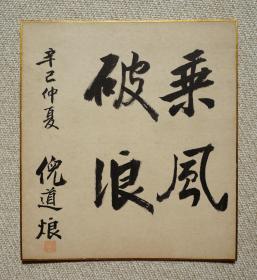 乘風
破浪
辛巳仲夏
倪道烺